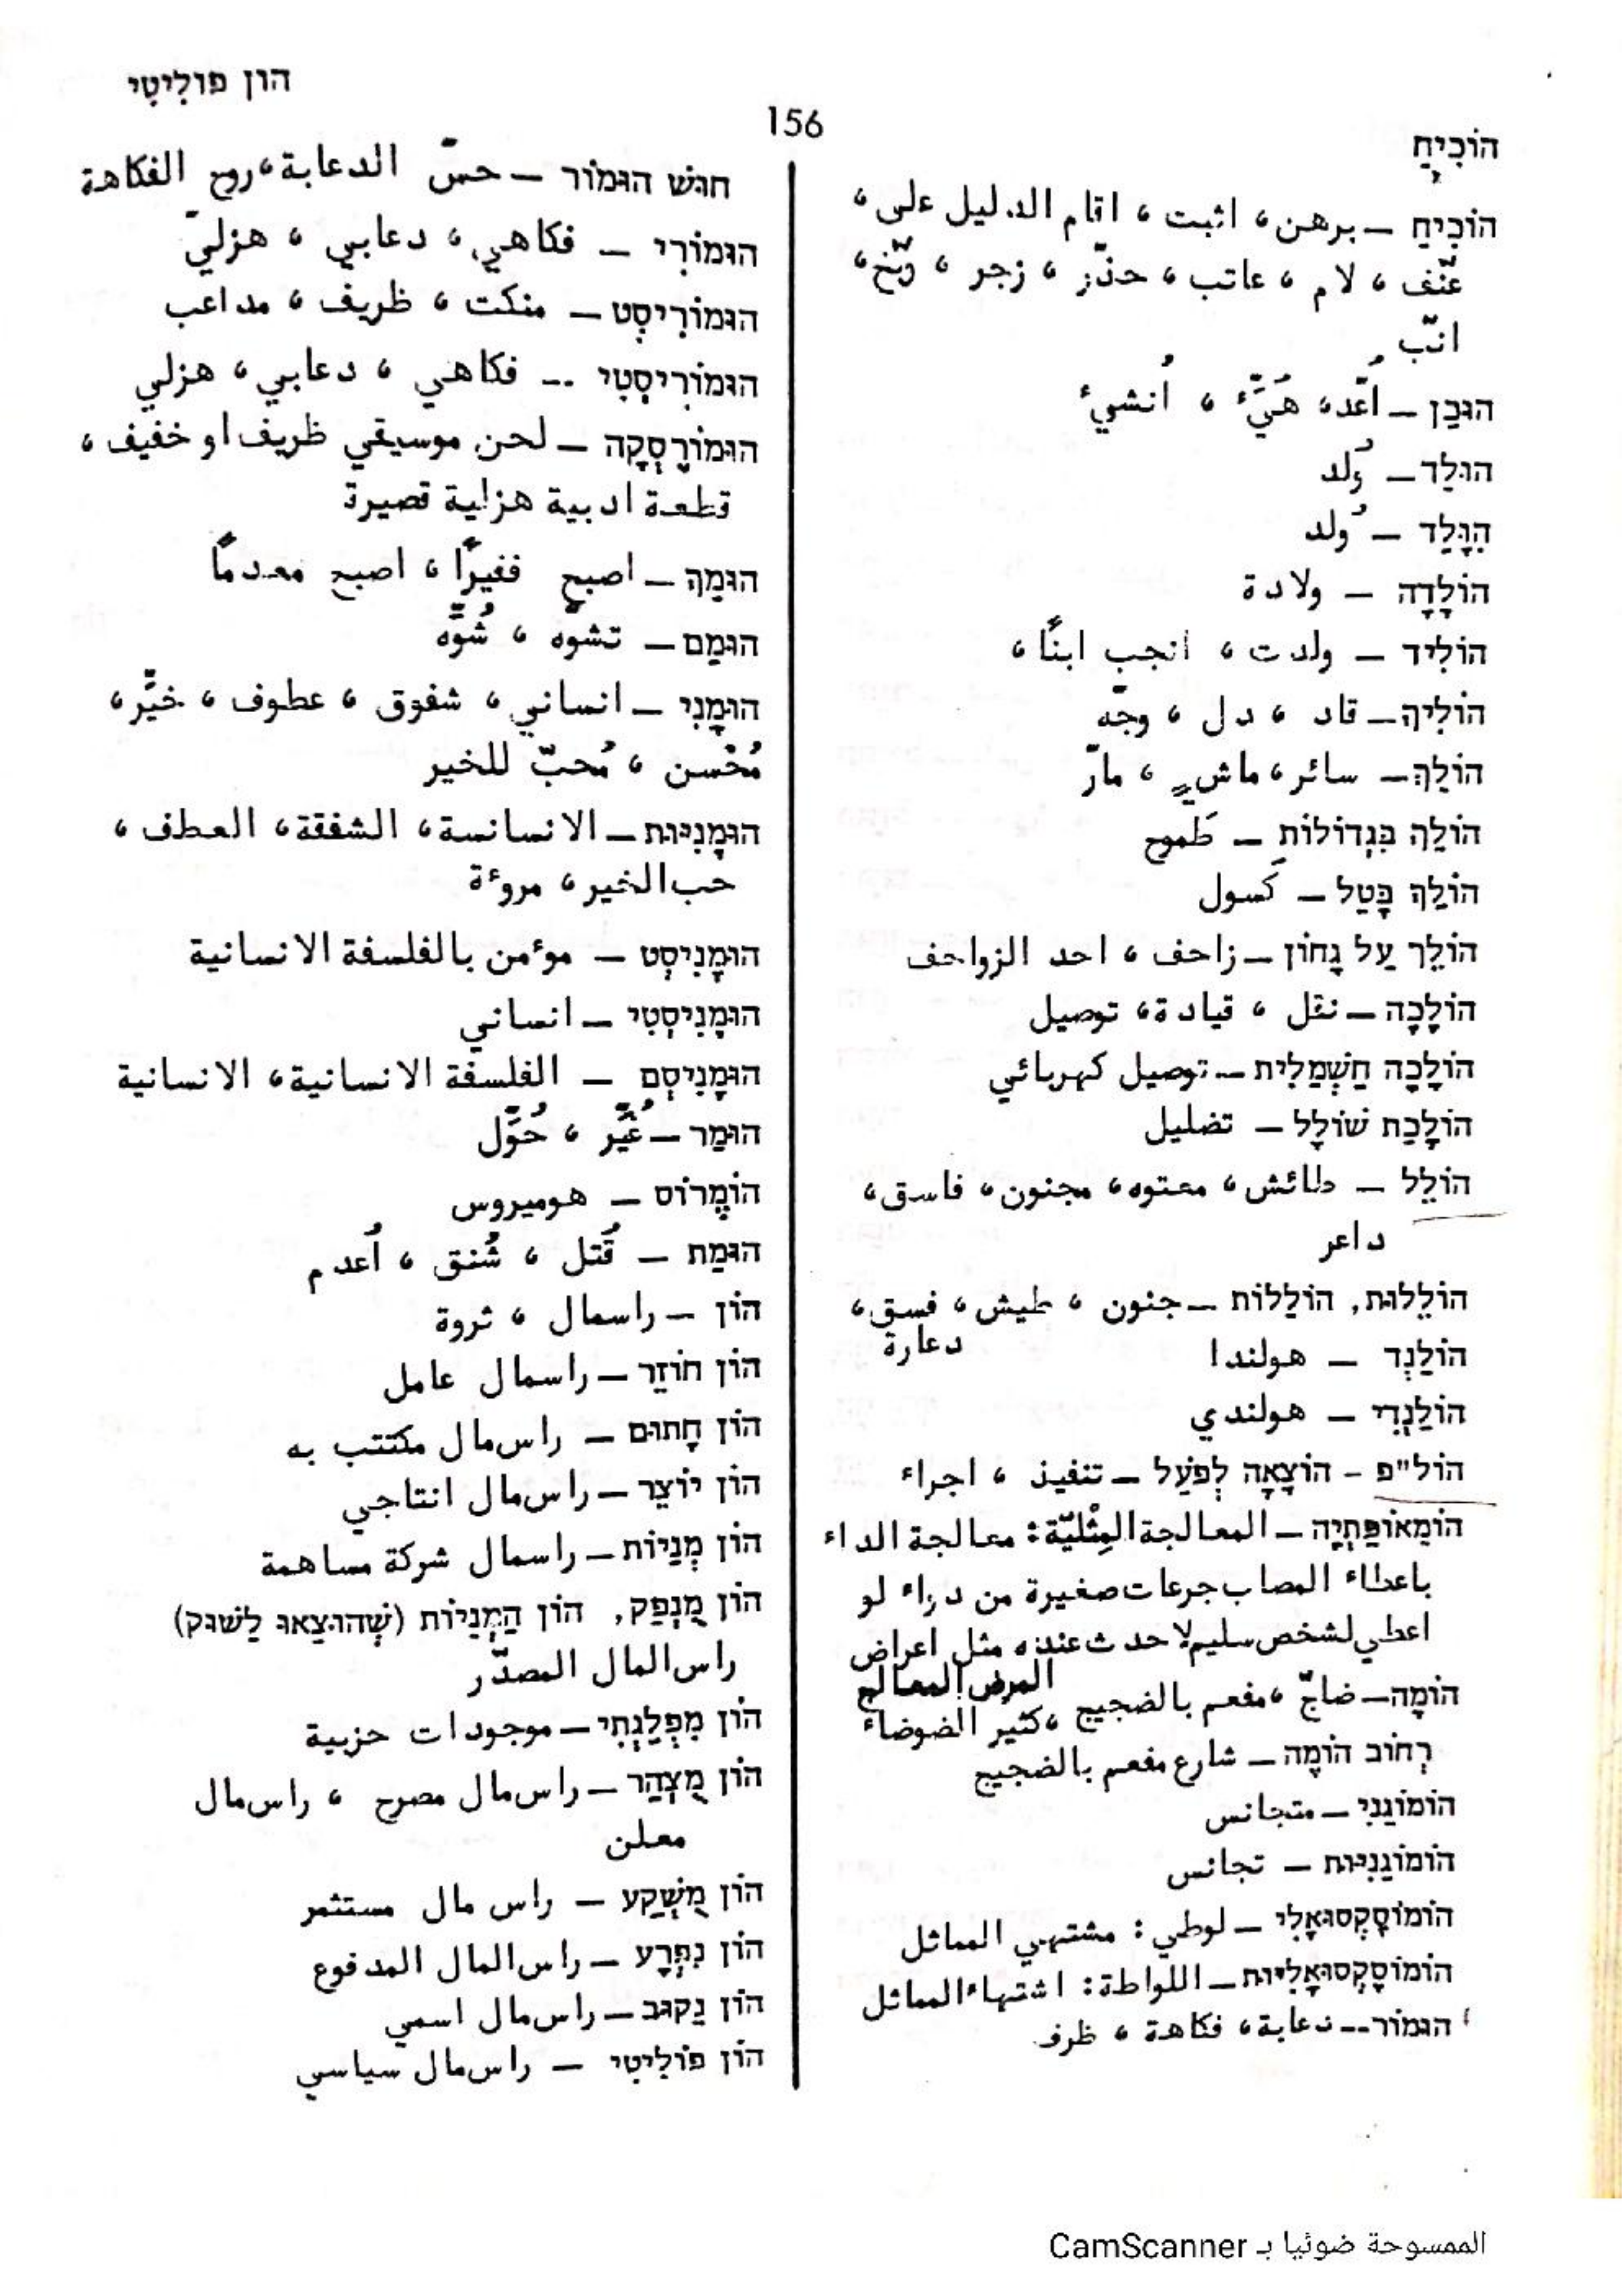 הון פוליטי
156
הוֹכִיחַ
הוֹכִיחַ – برهن، اثبت، اقام الدليل على،
عنّف، لام، عاتب، حذّر، زجر، وبّخ،
انّب
הוּכַן – اُعّد، هُيَّء، اُنشيء
הוּלַד – وُلد
הִוָּלַד – وُلد
הוֹלָדָה – ولادة
הוֹלִיד – ولدت، انجب ابنًا،
הוֹלִיךְ – قاد، دل، وجّه
הוֹלֵךְ – سائر، ماشٍ، مارّ
הוֹלֵךְ בִּגְדוֹלוֹת – طَموح
הוֹלֵךְ בָּטֵל – كَسول
הוֹלֵך עַל גָחוֹן – زاحف، احد الزواحف
הוֹלָכָה – نقل، قيادة، توصيل
הוֹלָכָה חַשְׁמַלִית – توصيل كهربائي
הוֹלָכַת שׁוֹלָל – تضليل
הוֹלֵל – طائش، معتوه، مجنون، فاسق،
داعر
הוֹלֵלוּת, הוֹלֵלוֹת – جنون، طيش، فسق،
دعارة
הוֹלַנְד – هولندا
הוֹלַנְדִי – هولندي
הול"פ – הוֹצָאָה לְפֹעַל – تنفيذ، اجراء
הוֹמֵאוֹפַּתְיָה – المعالجة المِثْليّة: معالجة الداء
باعطاء المصاب جرعات صغيرة من دواء لو
اعطي لشخص سليم لاحدث عنده مثل اعراض
المرض المعالج
הוֹמֶה – ضاجّ، مفعم بالضجيج، كثير الضوضاء
רְחוֹב הוֹמֶה – شارع مفعم بالضجيج
הוֹמוֹגֵנִי – متجانس
הוֹמוֹגֵנִיּוּת – تجانس
הוֹמוֹסֶקְסוּאָלִי – لوطي: مشتهي المماثل
הוֹמוֹסֶקְסוּאָלִיּוּת – اللواطة: اشتهاء المماثل
הוּמוֹר – دعابة، فكاهة، ظرف
חוּשׁ הוּמוֹר – حسّ الدعابة، روح الفكاهة
הוּמוֹרִי – فكاهي، دعابي، هزليّ
הוּמוֹרִיסְט – منكت، ظريف، مداعب
הוּמוֹרִיסְטִי – فكاهي، دعابي، هزلي
הוּמוֹרֶסְקָה – لحن موسيقي ظريف او خفيف،
قطعة ادبية هزلية قصيرة
הוּמַךְ – اصبح فقيرًا، اصبح معدمًا
הוּמַם – تشوّه، شُوِّه
הוּמָנִי – انساني، شفوق، عطوف، خيِّر،
مُحْسن، مُحبّ للخير
הוּמָנִיּוּת – الانسانسة، الشفقة، العطف،
حب الخير، مروءة
הוּמָנִיסְט – مؤمن بالفلسفة الانسانية
הוּמָנִיסְטִי – انساني
הוּמָנִיסְם – الفلسفة الانسانية، الانسانية
הוּמַר – غُيِّر، حُوِّل
הוֹמֶרוֹס – هوميروس
הוּמַת – قُتل، شُنق، اُعدم
הוֹן – راسمال، ثروة
הוֹן חוֹזֵר – راسمال عامل
הוֹן חָתוּם – راس مال مكتتب به
הוֹן יוֹצֵר – راس مال انتاجي
הוֹן מְנַיוֹת – راسمال شركة مساهمة
הוֹן מֻנְפַּק, הוֹן הַמְּנַיוֹת (שֶׁהוּצְאוּ לַשׁוּק)
راس المال المصدّر
הוֹן מִפְלַגְתִּי – موجودات حزبية
הוֹן מֻצְהָר – راس مال مصرح، راس مال
معلن
הוֹן מֻשְׁקָע – راس مال مستثمر
הוֹן נִפְרָע – راس المال المدفوع
הוֹן נָקוּב – راس مال اسمي
הוֹן פּוֹלִיטִי – راس مال سياسي
الممسوحة ضوئيا بـ CamScanner